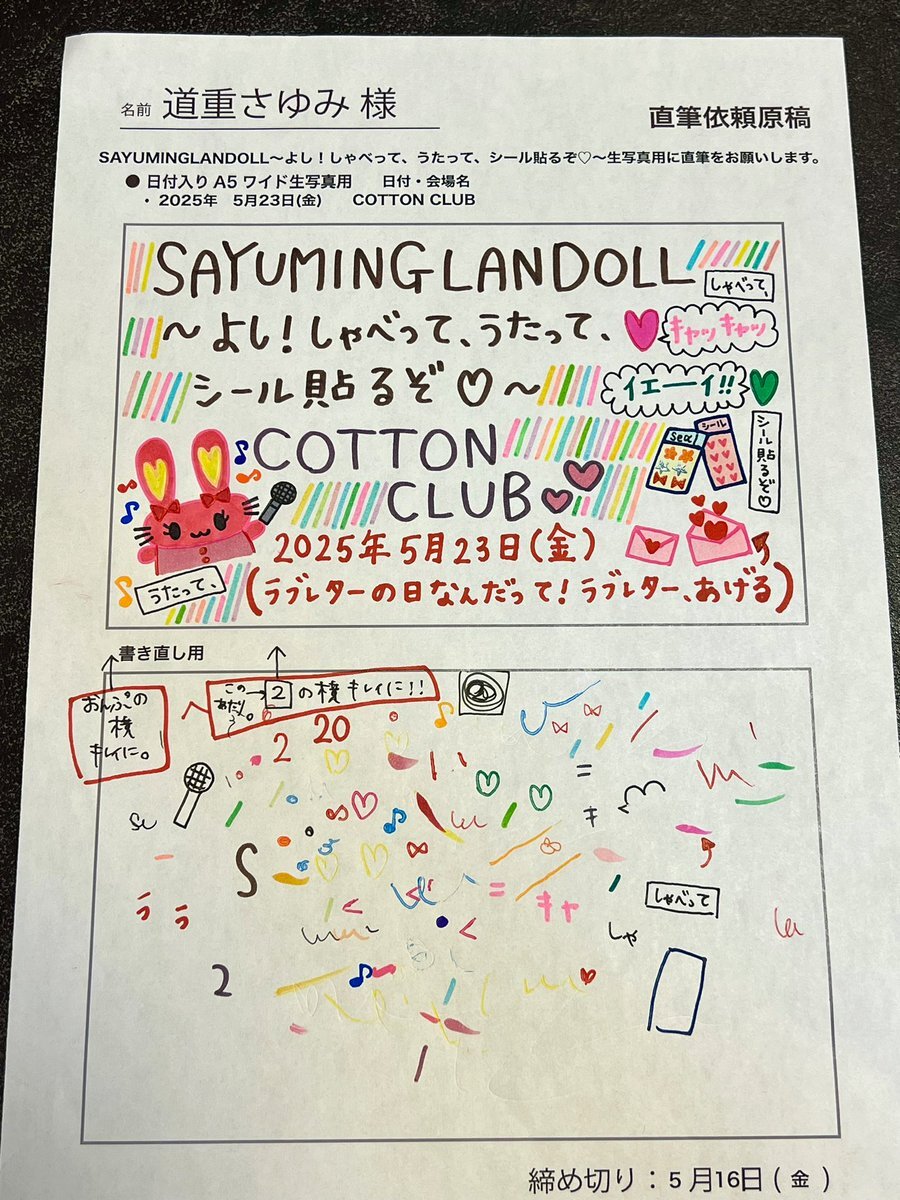 名前 道重さゆみ 様
直筆依頼原稿
SAYUMINGLANDOLL〜よし！しゃべって、うたって、シール貼るぞ♡〜生写真用に直筆をお願いします。
● 日付入り A5 ワイド生写真用 日付・会場名
・ 2025年 5月23日(金) COTTON CLUB
SAYUMINGLANDOLL
しゃべって、
〜よし！しゃべって、うたって、
キャッキャッ
シール貼るぞ♡〜
イエーイ!!
COTTON
seal
シール
シール貼るぞ♡
CLUB
2025年5月23日(金)
うたって、
(ラブレターの日なんだって！ラブレター、あげる)
書き直し用
おんぷの
横
キレイに。
このあたり
2の横キレイに!!
2 20
キ
S
しゃべって
キャ
ララ
しゃ
2
締め切り：5月16日(金)